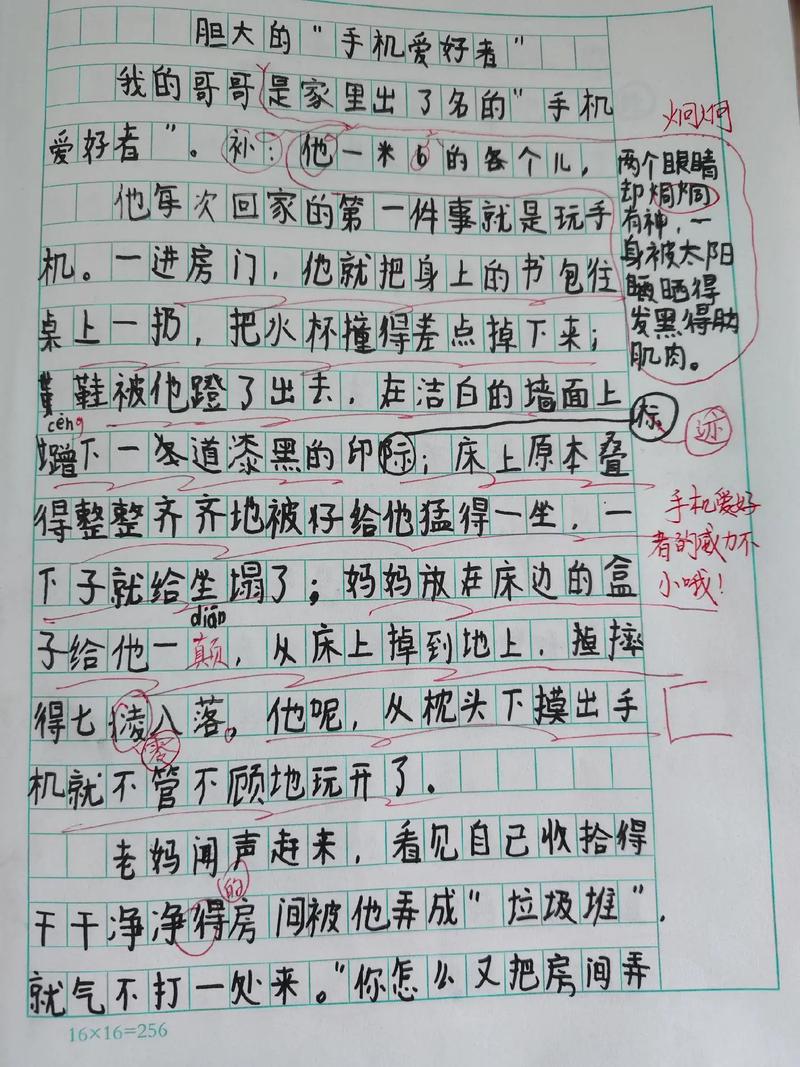 胆大的"手机爱好者"
我的哥哥是家里出了名的"手机
爱好者"。补:他一米6的各个儿,
两个眼睛
却炯炯
有神,一
身被太阳
晒得
发黑得
肌肉。
炯炯
他每次回家的第一件事就是玩手
机。一进房门,他就把身上的书包往
桌上一扔,把水杯撞得差点掉下来;
鞋被他蹬了出去,在洁白的墙面上
标
迹
cèng
蹭下一道漆黑的印际;床上原本叠
得整整齐齐地被好给他猛得一坐,一
手机爱好
者的威力不
小哦!
下子就给坐塌了;妈妈放在床边的盒
diān
子给他一颠,从床上掉到地上,摔
得七凌八落。他呢,从枕头下摸出手
零
机就不管不顾地玩开了.
老妈闻声赶来,看见自己收拾得
的
干干净净得房间被他弄成"垃圾堆",
就气不打一处来。"你怎么又把房间弄
16×16=256